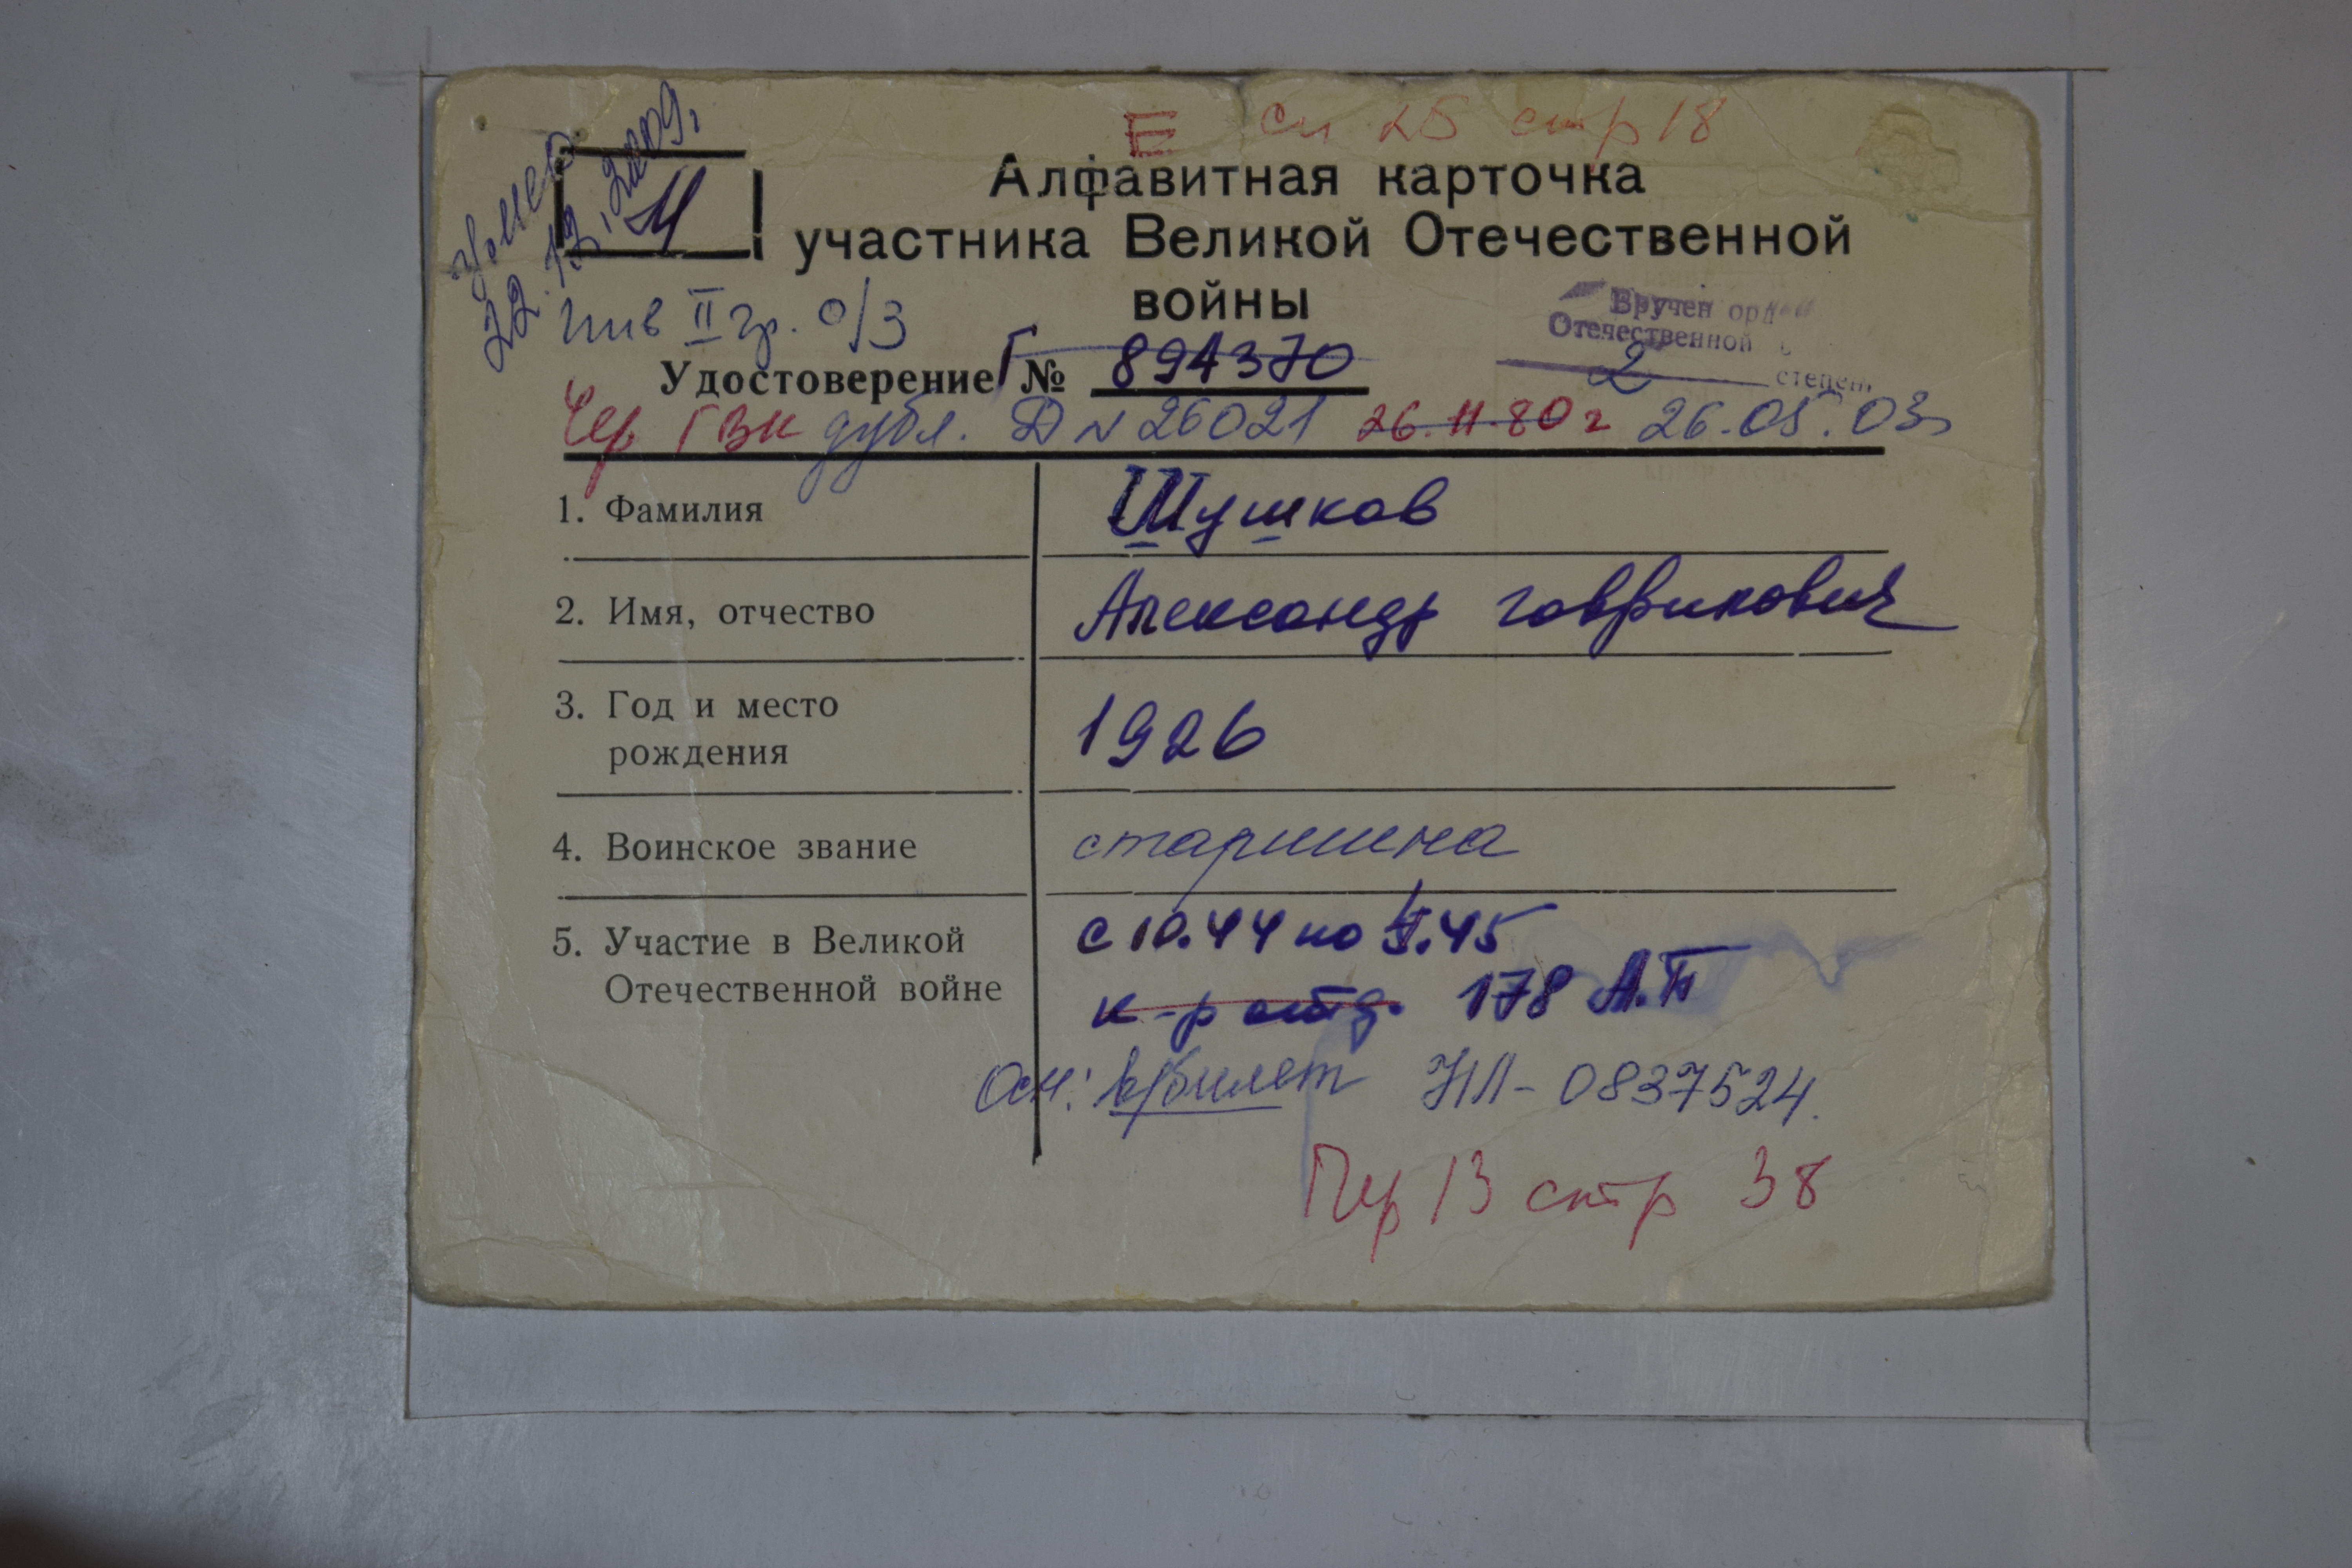 Е сп 25 стр 18
умер
22.12.2009г
Алфавитная карточка
участника Великой Отечественной
войны
инв II гр. о/з
Вручен орден
Отечественной
2 степени
Удостоверение Г № 894370
Чер ГВК дубл. Д № 26021 26.11.80 г 26.05.03г
1. Фамилия Шушков
2. Имя, отчество Александр Гаврилович
3. Год и место
рождения 1926
4. Воинское звание старшина
5. Участие в Великой с 10.44 по 5.45
Отечественной войне к-р отд. 178 А.П
Осн: в/билет НЛ-0837524.
Пер 13 стр 38